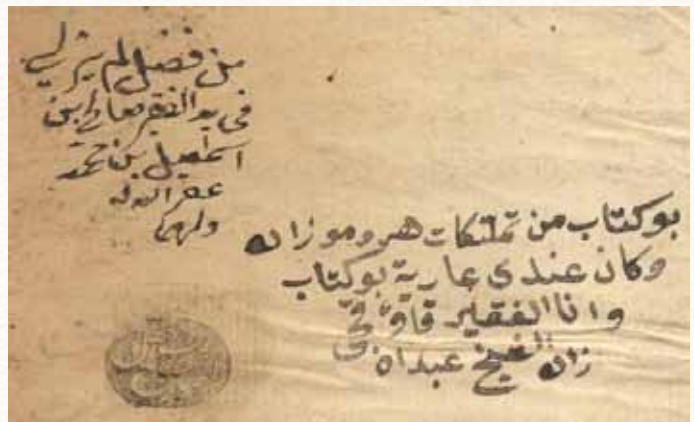 من فضل لم يزلي
في يد الفقير صالح ابن
اسمعيل بن محمد
غفر الله له
ولهما
بو كتاب من تملكات هرومو زاده
وكان عندي عارية بو كتاب
وانا الفقير
زاده الشيخ عبد الله